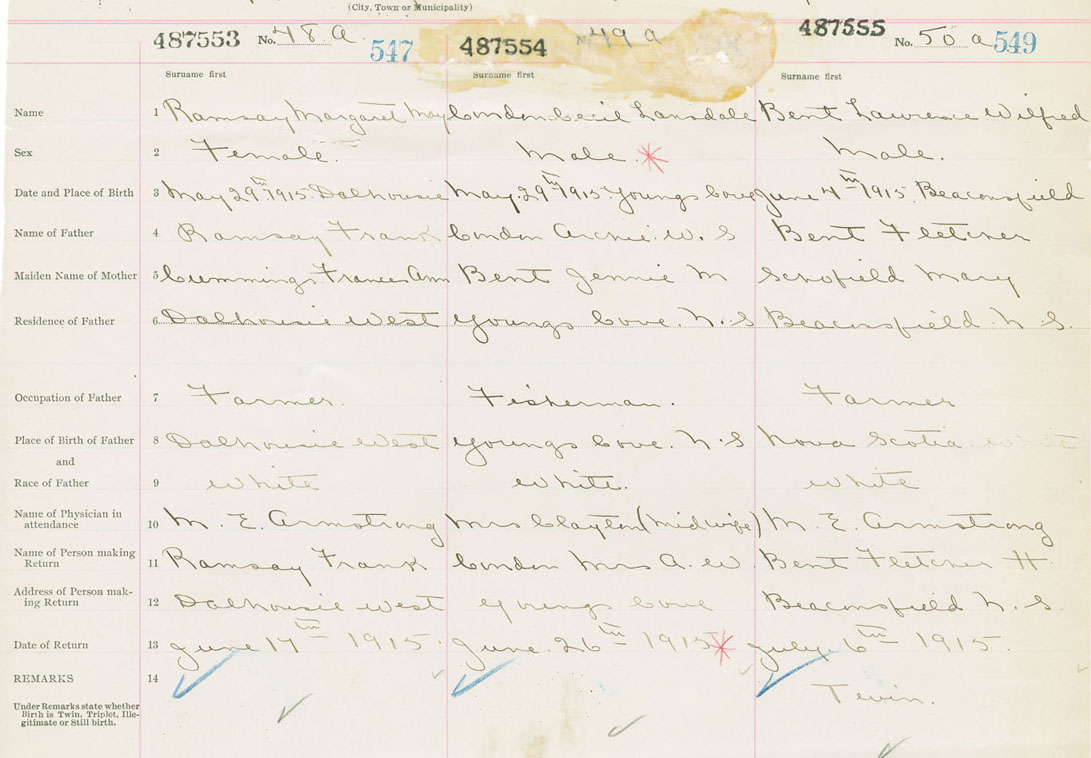 (City, Town or Municipality)
487553 No. 48 a 547 487554 49 a 487555 No. 50 a 549
Surname first Surname first Surname first
Name 1 Ramsay Margaret May Condon Cecil Lansdale Bent Lawrence Wilfred
Sex 2 Female. Male. Male.
Date and Place of Birth 3 May 29th 1915. Dalhousie May. 29th 1915. Youngs Cove June 4th 1915. Beaconsfield
Name of Father 4 Ramsay Frank Condon Archie. W. S Bent Fletcher
Maiden Name of Mother 5 Cummings. Frances Ann Bent Jennie M Schofield Mary
Residence of Father 6 Dalhousie West Youngs Cove. N. S Beaconsfield. N. S.
Occupation of Father 7 Farmer. Fisherman. Farmer
Place of Birth of Father 8 Dalhousie West Youngs Cove. N. S Nova Scotia White
and
Race of Father 9 White White. White
Name of Physician in
attendance 10 M. E. Armstrong Mrs Clayton (Midwife) M. E. Armstrong
Name of Person making
Return 11 Ramsay Frank Condon Mrs A. W. Bent Fletcher H.
Address of Person mak-
ing Return 12 Dalhousie West Youngs Cove Beaconsfield N. S.
Date of Return 13 June 17th 1915. June. 26th 1915 July 6th 1915.
REMARKS 14 Twin.
Under Remarks state whether
Birth is Twin, Triplet, Ille-
gitimate or Still birth.